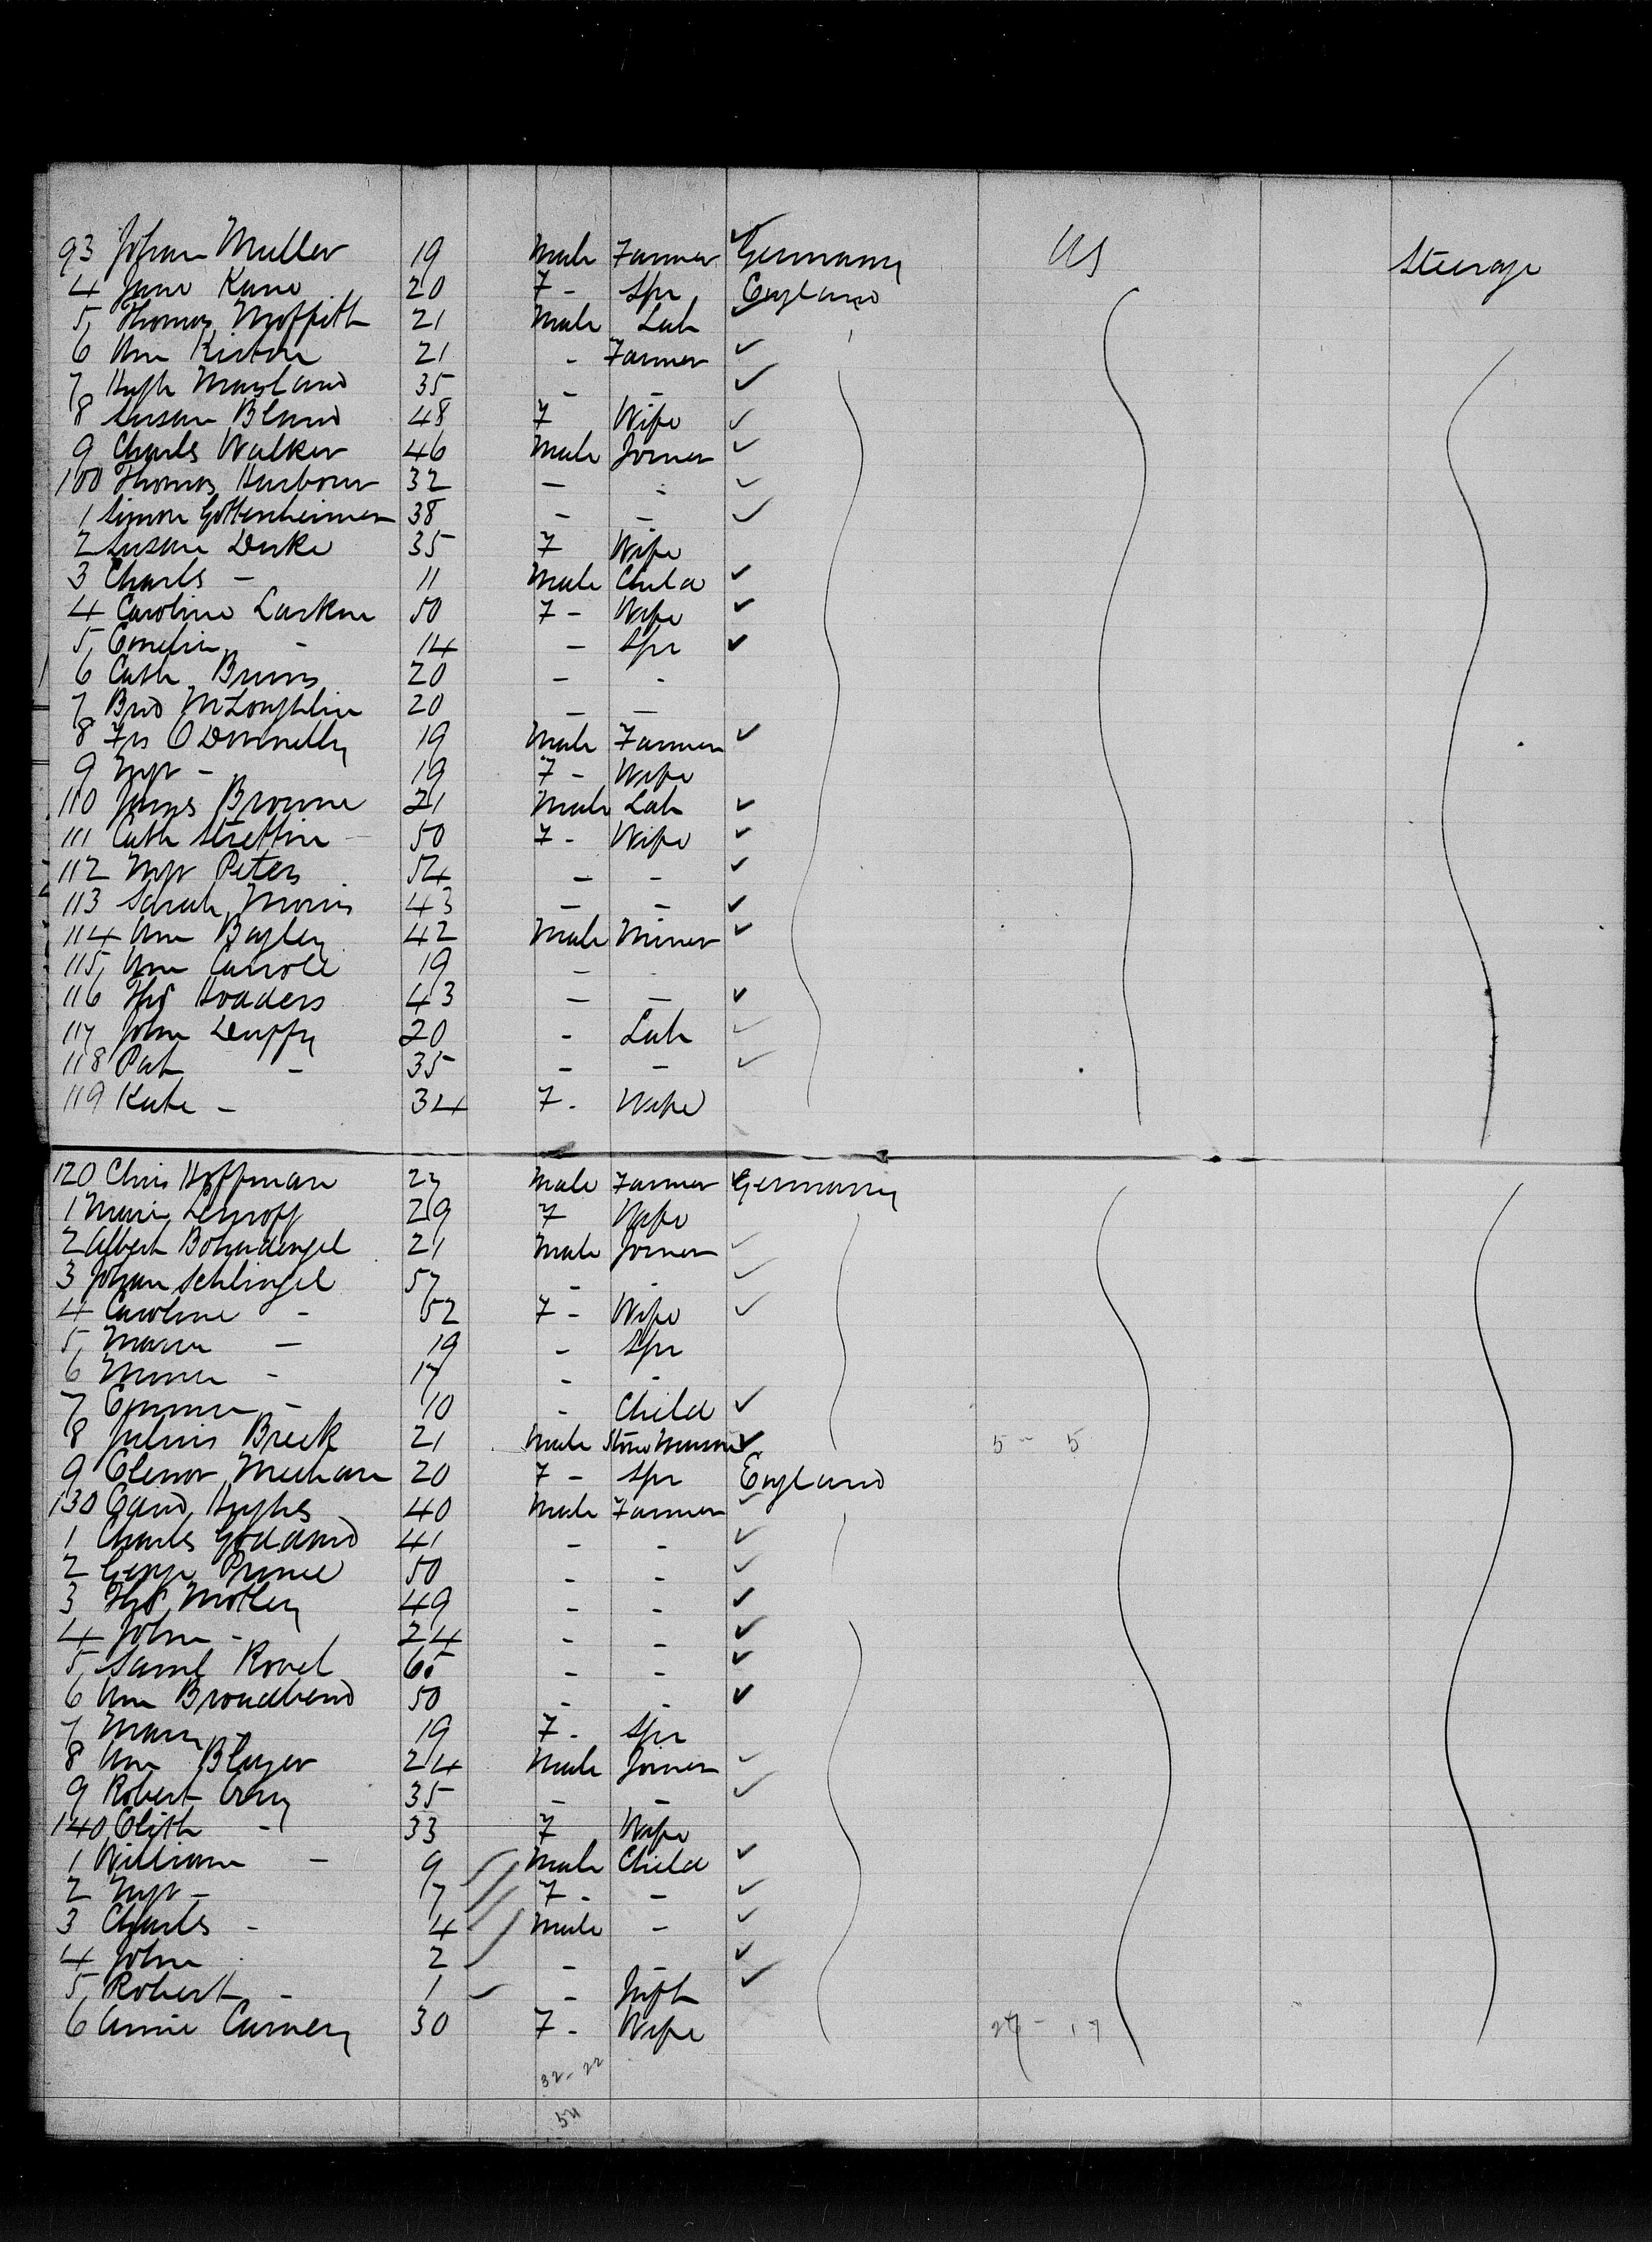 93 Johan Muller 19 Male Farmer Germany US Steerage
4 Jane Kane 20 F - Spr England
5 Thomas Moffitt 21 Male Lab
6 Wm 21 - Farmer
7 Hugh 35 - -
8 Susan Bland 48 F Wife
9 Charles Walker 46 Male Joiner
100 Thomas Harbour 32 - -
1 Simon Gottenheimer 38 - -
2 Susan Duke 35 F Wife
3 Charls - 11 Male Child
4 Caroline Larkin 50 F - Wife
5 - 14 - Spr
6 Cath Burns 20 - -
7 Brid McLoughlin 20 - -
8 Frs O Donnelly 19 Male Farmer
9 Mgt - 19 F - Wife
110 James Browne 21 Male Lab
111 Cath 50 F - Wife
112 Mgt Peters 54 - -
113 Sarah Morris 43 - -
114 Wm Bagley 42 Male Miner
115 Wm Carroll 19 - -
116 Ths 43 - -
117 John Duffy 20 - Lab
118 Pat - 35 - -
119 Kate - 34 F - Wife
120 Chris Hoffman 27 Male Farmer Germany
1 29 F Wife
2 Albert 21 Male Joiner
3 Johan Schlingel 57 - -
4 Caroline - 52 F - Wife
5 Maria - 19 - Spr
6 - 17 - -
7 Emma - 10 - Child
8 Julius Breck 21 Male Stone Mason 5 - 5
9 Elenor Meehan 20 F - Spr England
130 Hughes 40 Male Farmer
1 Charles Goddard 41 - -
2 George Prince 50 - -
3 Ths Motley 49 - -
4 John - 24 - -
5 Saml 65 - -
6 Wm Broadbend 50 - -
7 Mary 19 F - Spr
8 Wm Blazer 24 Male Joiner
9 Robert 35 - -
140 - 33 F Wife
1 William - 9 Male Child
2 Mgt - 7 F - -
3 Charls - 4 Male -
4 John - 2 - -
5 Robert - 1 - Inft
6 Annie 30 F - Wife 17
32 - 22
54